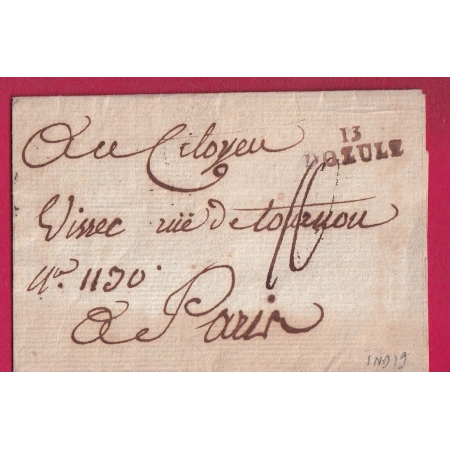 Au Citoyen
13
DOZULE
Vissec rüe de tournon
N° 1130.
A Paris